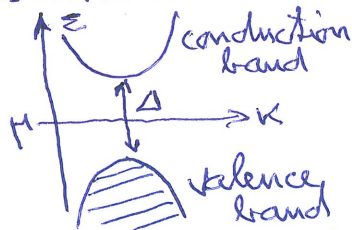 ε conduction
band
Δ
μ K
valence
band